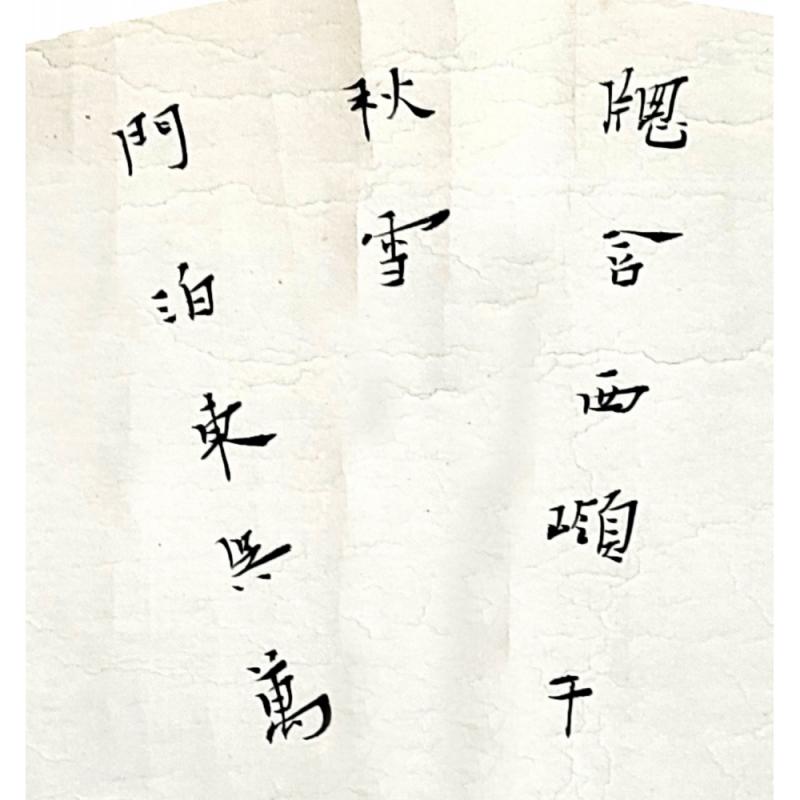 牕含西嶺千
秋雪
門泊東吳萬